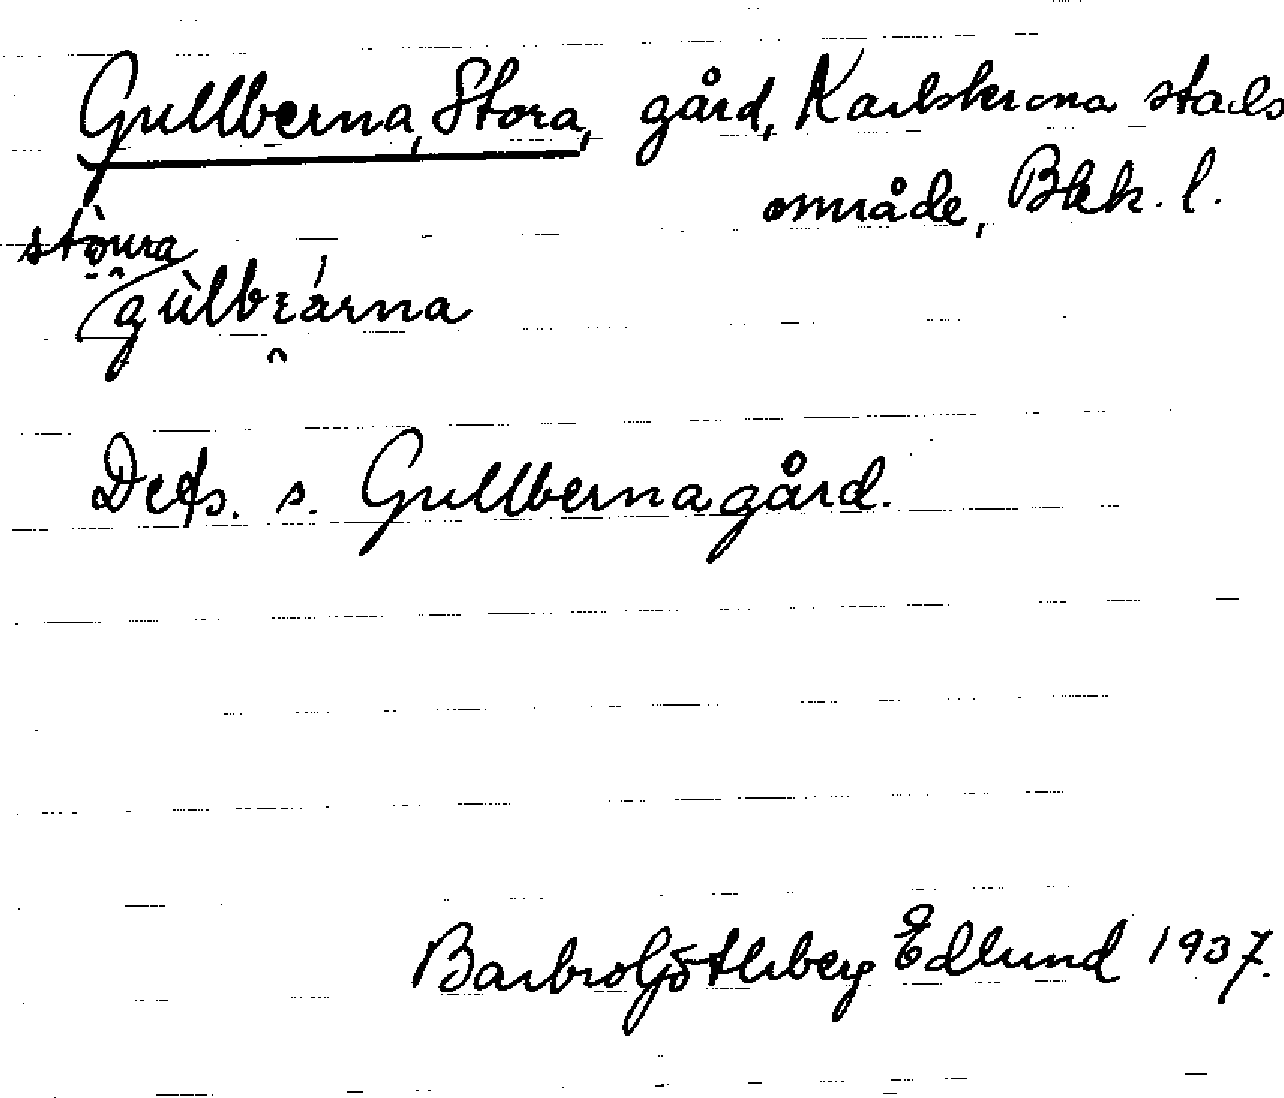 Gullberna, Stora, gård, Karlskrona stads
område, Blek. l.
stòura
gùlbɛárna
Dets. s. Gullbernagård.
Barbro Götherberg Edlund 1937.